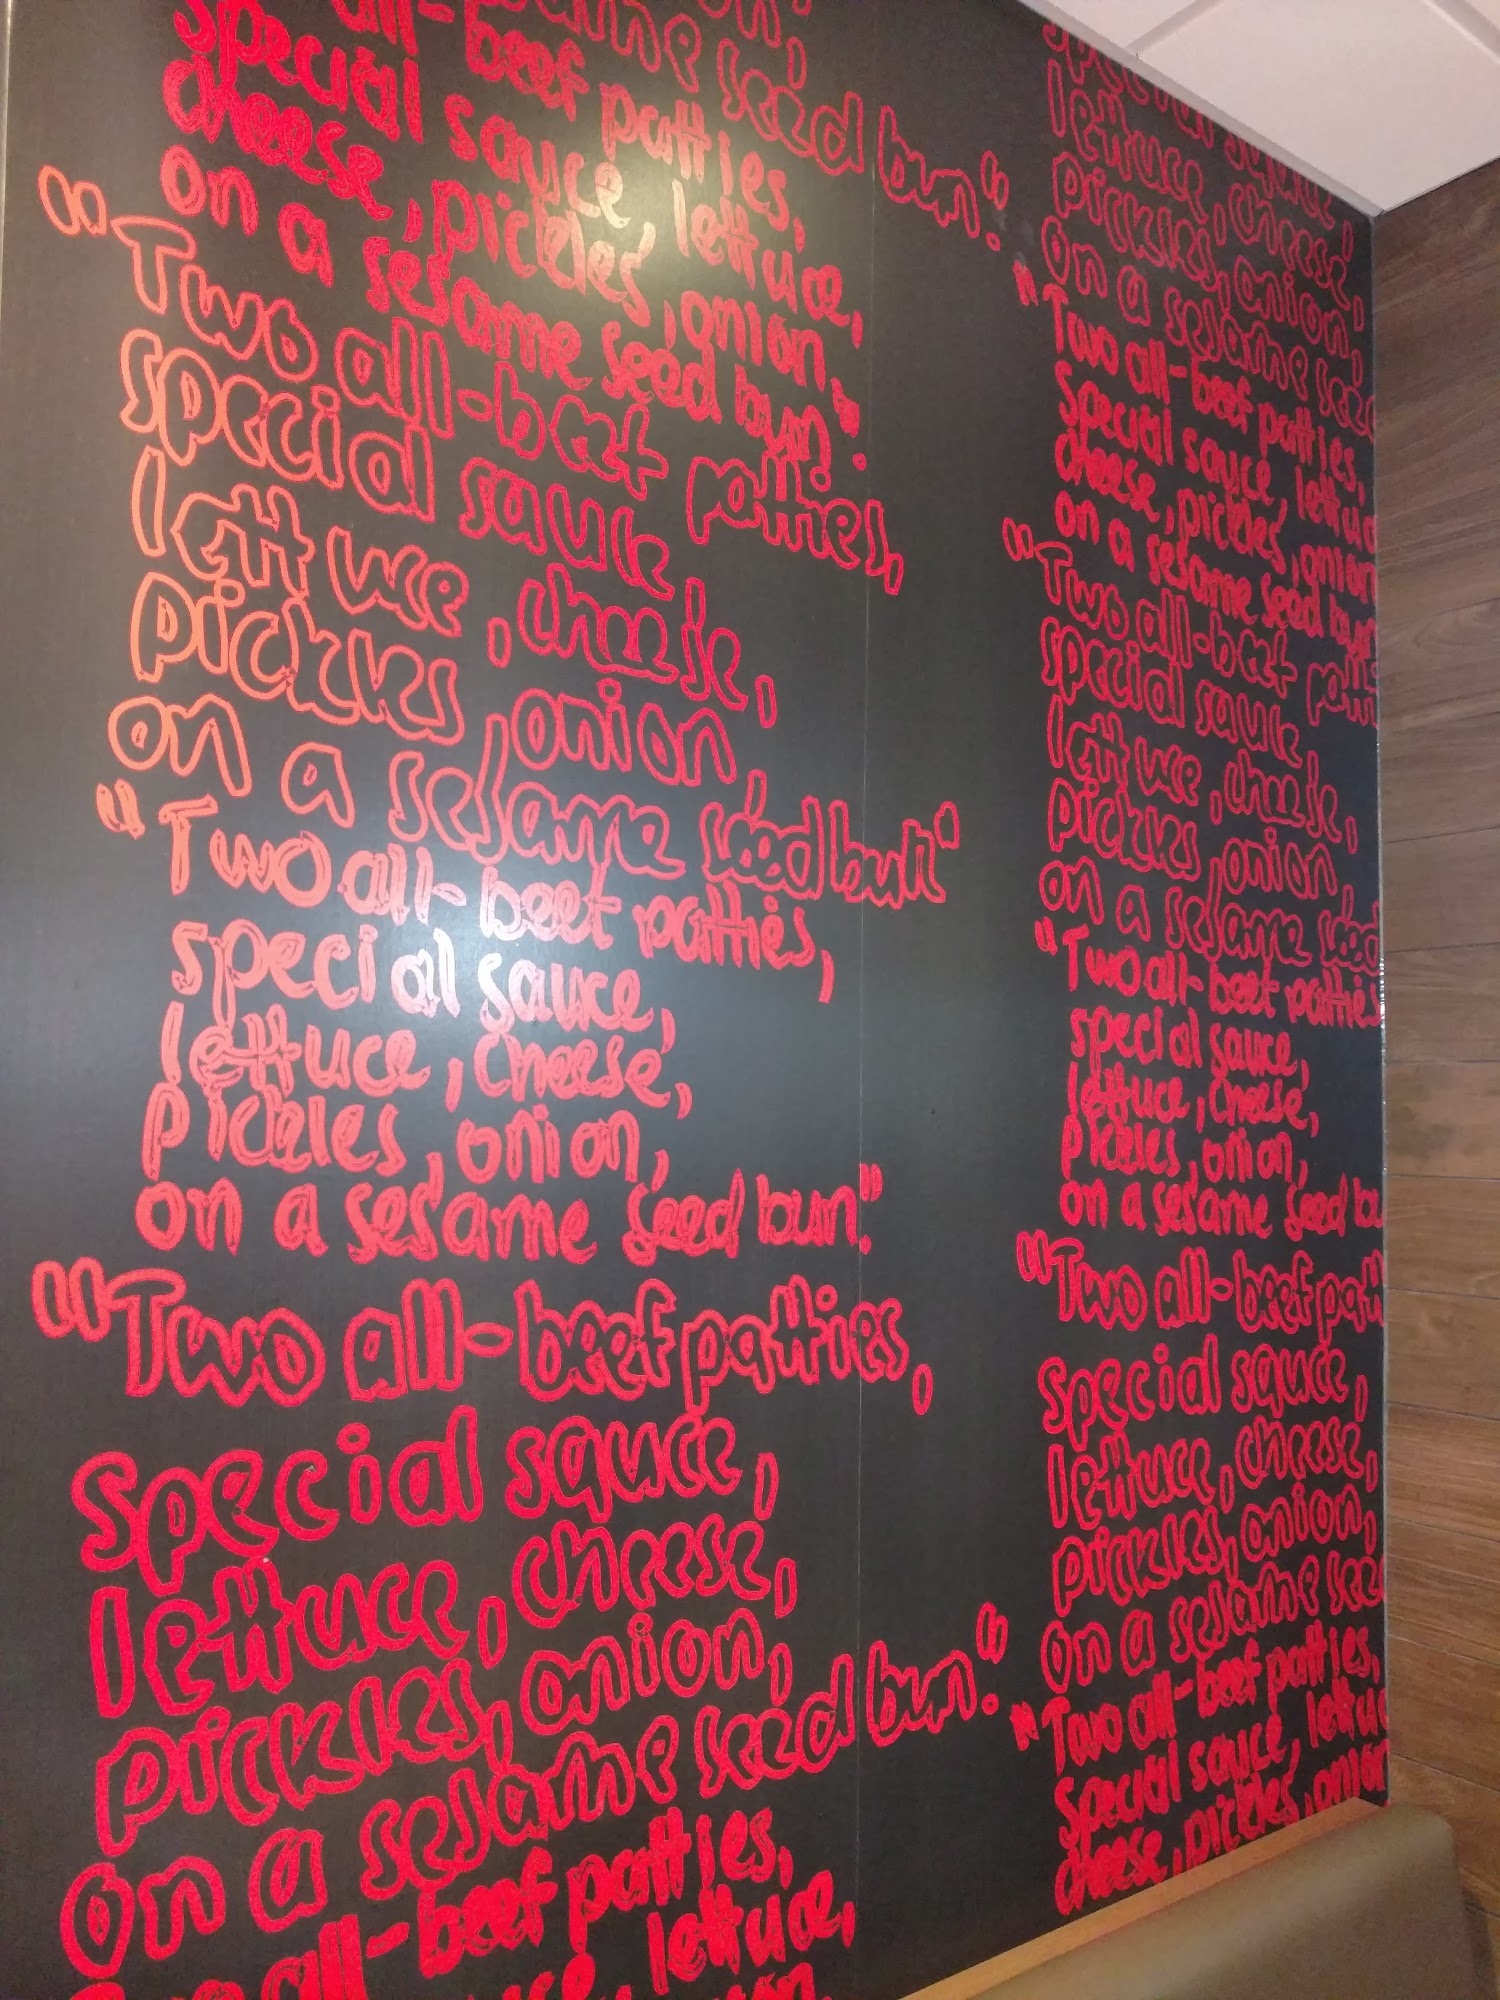 sesame seed bun,"
all-beef patties,
special sauce, lettuce,
cheese, pickles, onion,
on a sesame seed bun."
"Two all-beef patties,
special sauce,
lettuce, cheese,
pickles, onion,
on a sesame seed bun"
"Two all-beef patties,
special sauce,
lettuce, cheese,
pickles, onion,
on a sesame seed bun."
"Two all-beef patties,
special sauce,
lettuce, cheese,
pickles, onion,
on a sesame seed bun."
Two all-beef patties,
lettuce,
special sauce
lettuce, cheese,
pickles, onion,
on a sesame seed
"Two all-beef patties,
special sauce, lettuc
cheese, pickles, onion
on a sesame seed bun
"Two all-beef patti
special sauce,
lettuce, cheese,
pickles, onion,
on a sesame seed
"Two all-beef patties
special sauce,
lettuce, cheese,
pickles, onion,
on a sesame seed bu
"Two all-beef patt
special sauce,
lettuce, cheese,
pickles, onion,
on a sesame see
"Two all-beef patties,
special sauce, lettuc
cheese, pickles, onion